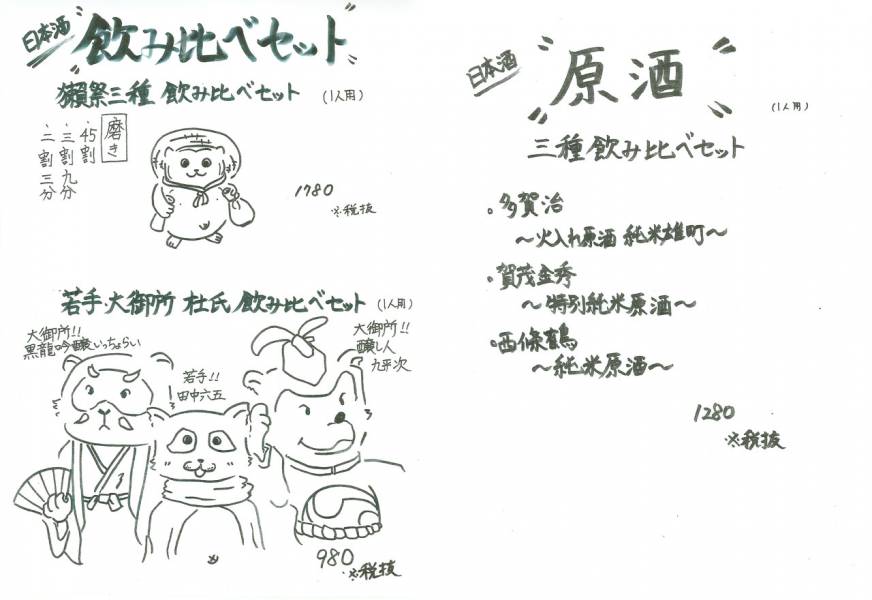 日本酒
"飲み比べセット"
獺祭三種 飲み比べセット (1人用)
磨き
・45割
・三割九分
・二割三分
1780
※税抜
若手・大御所 杜氏 飲み比べセット (1人用)
大御所!!
黒龍吟醸いっちょらい
若手!!
田中六五
大御所!!
醸し人
九平次
980
※税抜
日本酒
"原酒"
(1人用)
三種飲み比べセット
・多賀治
〜火入れ原酒 純米雄町〜
・賀茂金秀
〜特別純米原酒〜
・西條鶴
〜純米原酒〜
1280
※税抜